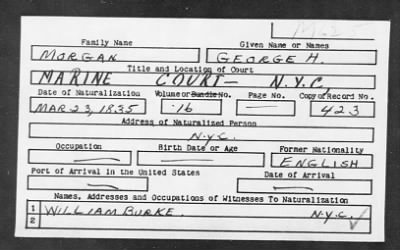 M-625
Family Name Given Name or Names
MORGAN GEORGE H.
Title and Location of Court
MARINE COURT - N.Y.C.
Date of Naturalization Volume or Bundle No. Page No. Copy of Record No.
MAR 23, 1835 16 — 423
Address of Naturalized Person
N.Y.C.
Occupation Birth Date or Age Former Nationality
— — ENGLISH
Port of Arrival in the United States Date of Arrival
— —
Names, Addresses and Occupations of Witnesses To Naturalization
1 WILLIAM BURKE. N.Y.C. ✓
2